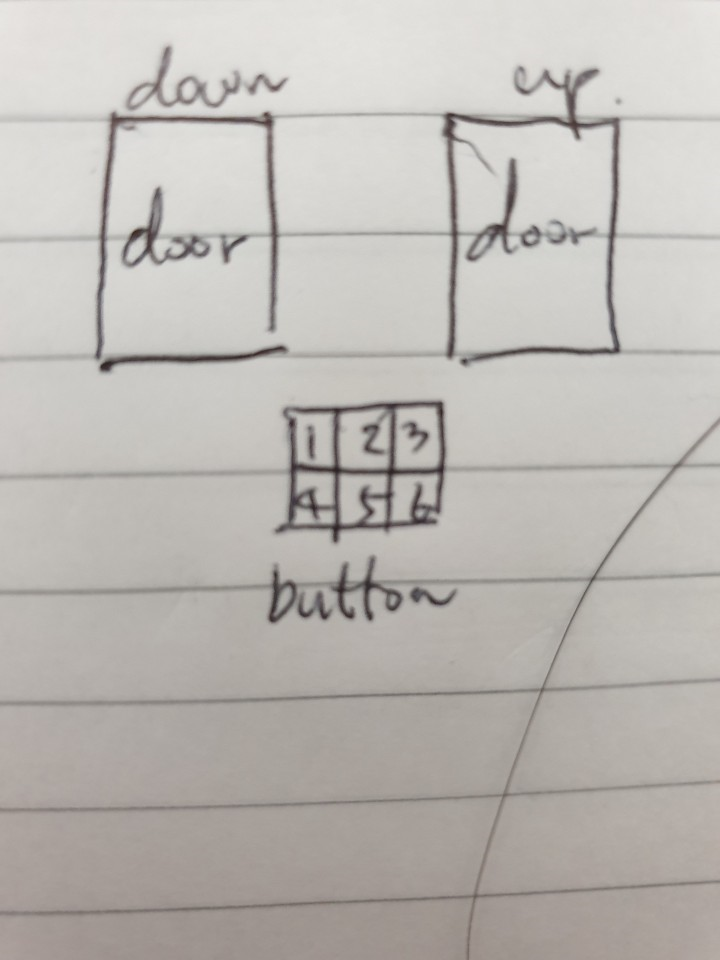 down up.
door door
1 2 3
4 5 6
button